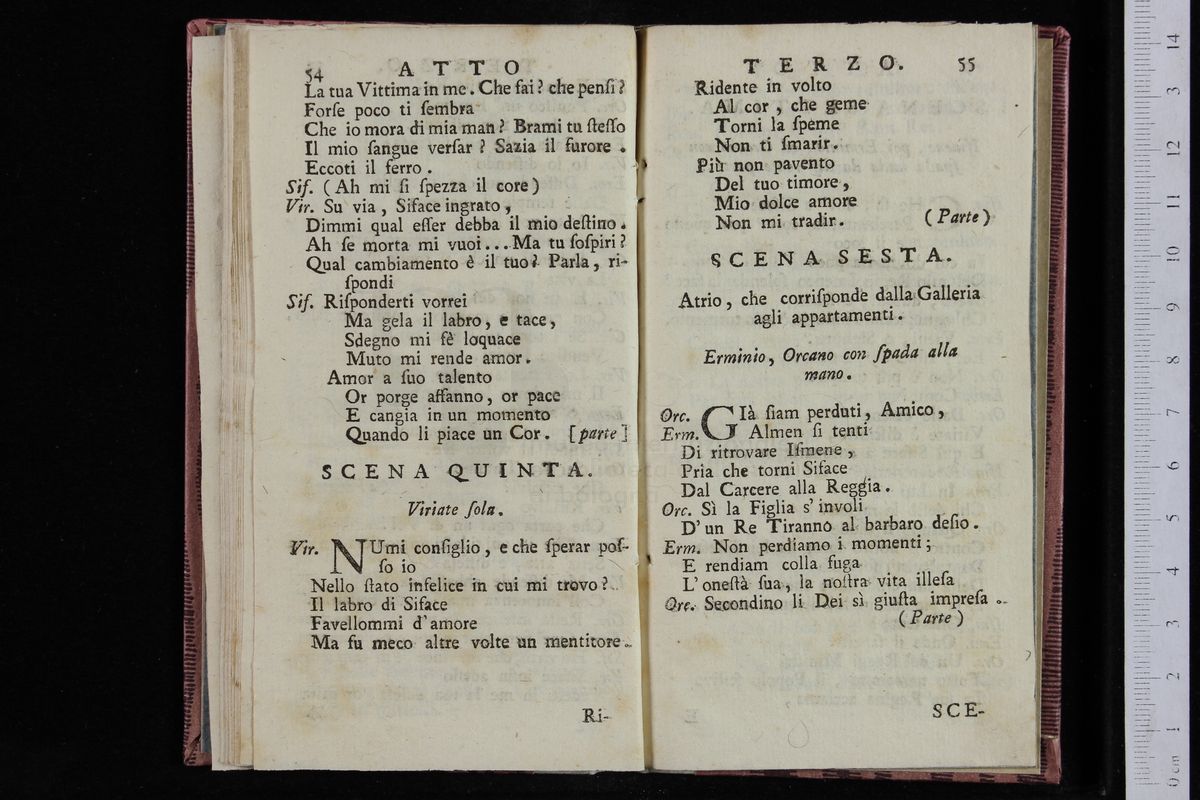 54 ATTO
La tua Vittima in me. Che fai? che penſi?
Forſe poco ti ſembra
Che io mora di mia man? Brami tu ſteſſo
Il mio ſangue verſar? Sazia il furore.
Eccoti il ferro.
Sif. (Ah mi ſi ſpezza il core)
Vir. Su via, Siface ingrato,
Dimmi qual eſſer debba il mio deſtino.
Ah ſe morta mi vuoi... Ma tu ſoſpiri?
Qual cambiamento è il tuo? Parla, ri-
ſpondi
Sif. Riſponderti vorrei
Ma gela il labro, e tace,
Sdegno mi fè loquace
Muto mi rende amor.
Amor a ſuo talento
Or porge affanno, or pace
E cangia in un momento
Quando li piace un Cor. [parte]
SCENA QUINTA.
Viriate ſola.
Vir. NUmi conſiglio, e che ſperar poſ-
ſo io
Nello ſtato infelice in cui mi trovo?
Il labro di Siface
Favellommi d'amore
Ma fu meco altre volte un mentitore.
Ri-
TERZO. 55
Ridente in volto
Al cor, che geme
Torni la ſpeme
Non ti ſmarir.
Più non pavento
Del tuo timore,
Mio dolce amore
Non mi tradir. (Parte)
SCENA SESTA.
Atrio, che corriſponde dalla Galleria
agli appartamenti.
Erminio, Orcano con ſpada alla
mano.
Orc. GIà ſiam perduti, Amico,
Erm. Almen ſi tenti
Di ritrovare Iſmene,
Pria che torni Siface
Dal Carcere alla Reggia.
Orc. Sì la Figlia s'involi
D'un Re Tiranno al barbaro deſio.
Erm. Non perdiamo i momenti;
E rendiam colla fuga
L'oneſtà ſua, la noſtra vita illeſa
Orc. Secondino li Dei sì giuſta impreſa.
(Parte)
SCE-
0 cm 1 2 3 4 5 6 7 8 9 10 11 12 3 14